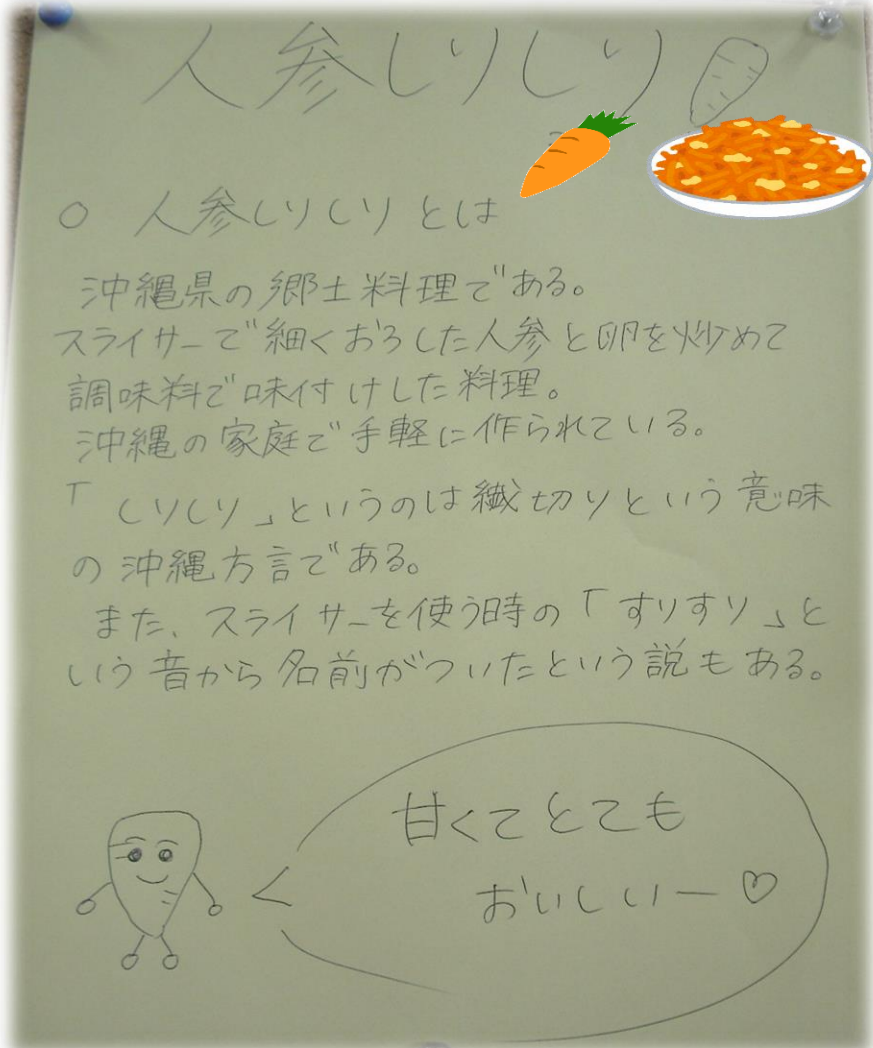 人参しりしり
○ 人参しりしりとは
沖縄県の郷土料理である。
スライサーで細くおろした人参と卵を炒めて
調味料で味付けした料理。
沖縄の家庭で手軽に作られている。
「しりしり」というのは繊切りという意味
の沖縄方言である。
また、スライサーを使う時の「すりすり」と
いう音から名前がついたという説もある。
甘くてとても
おいしいー♡